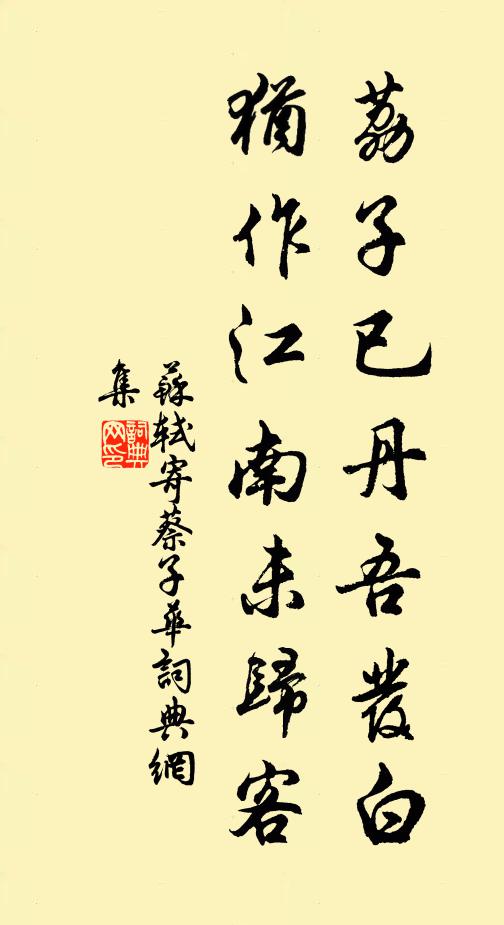 荔子已丹吾發白
猶作江南未歸客
蘇軾寄蔡子華詞典網
集
詞典
网印